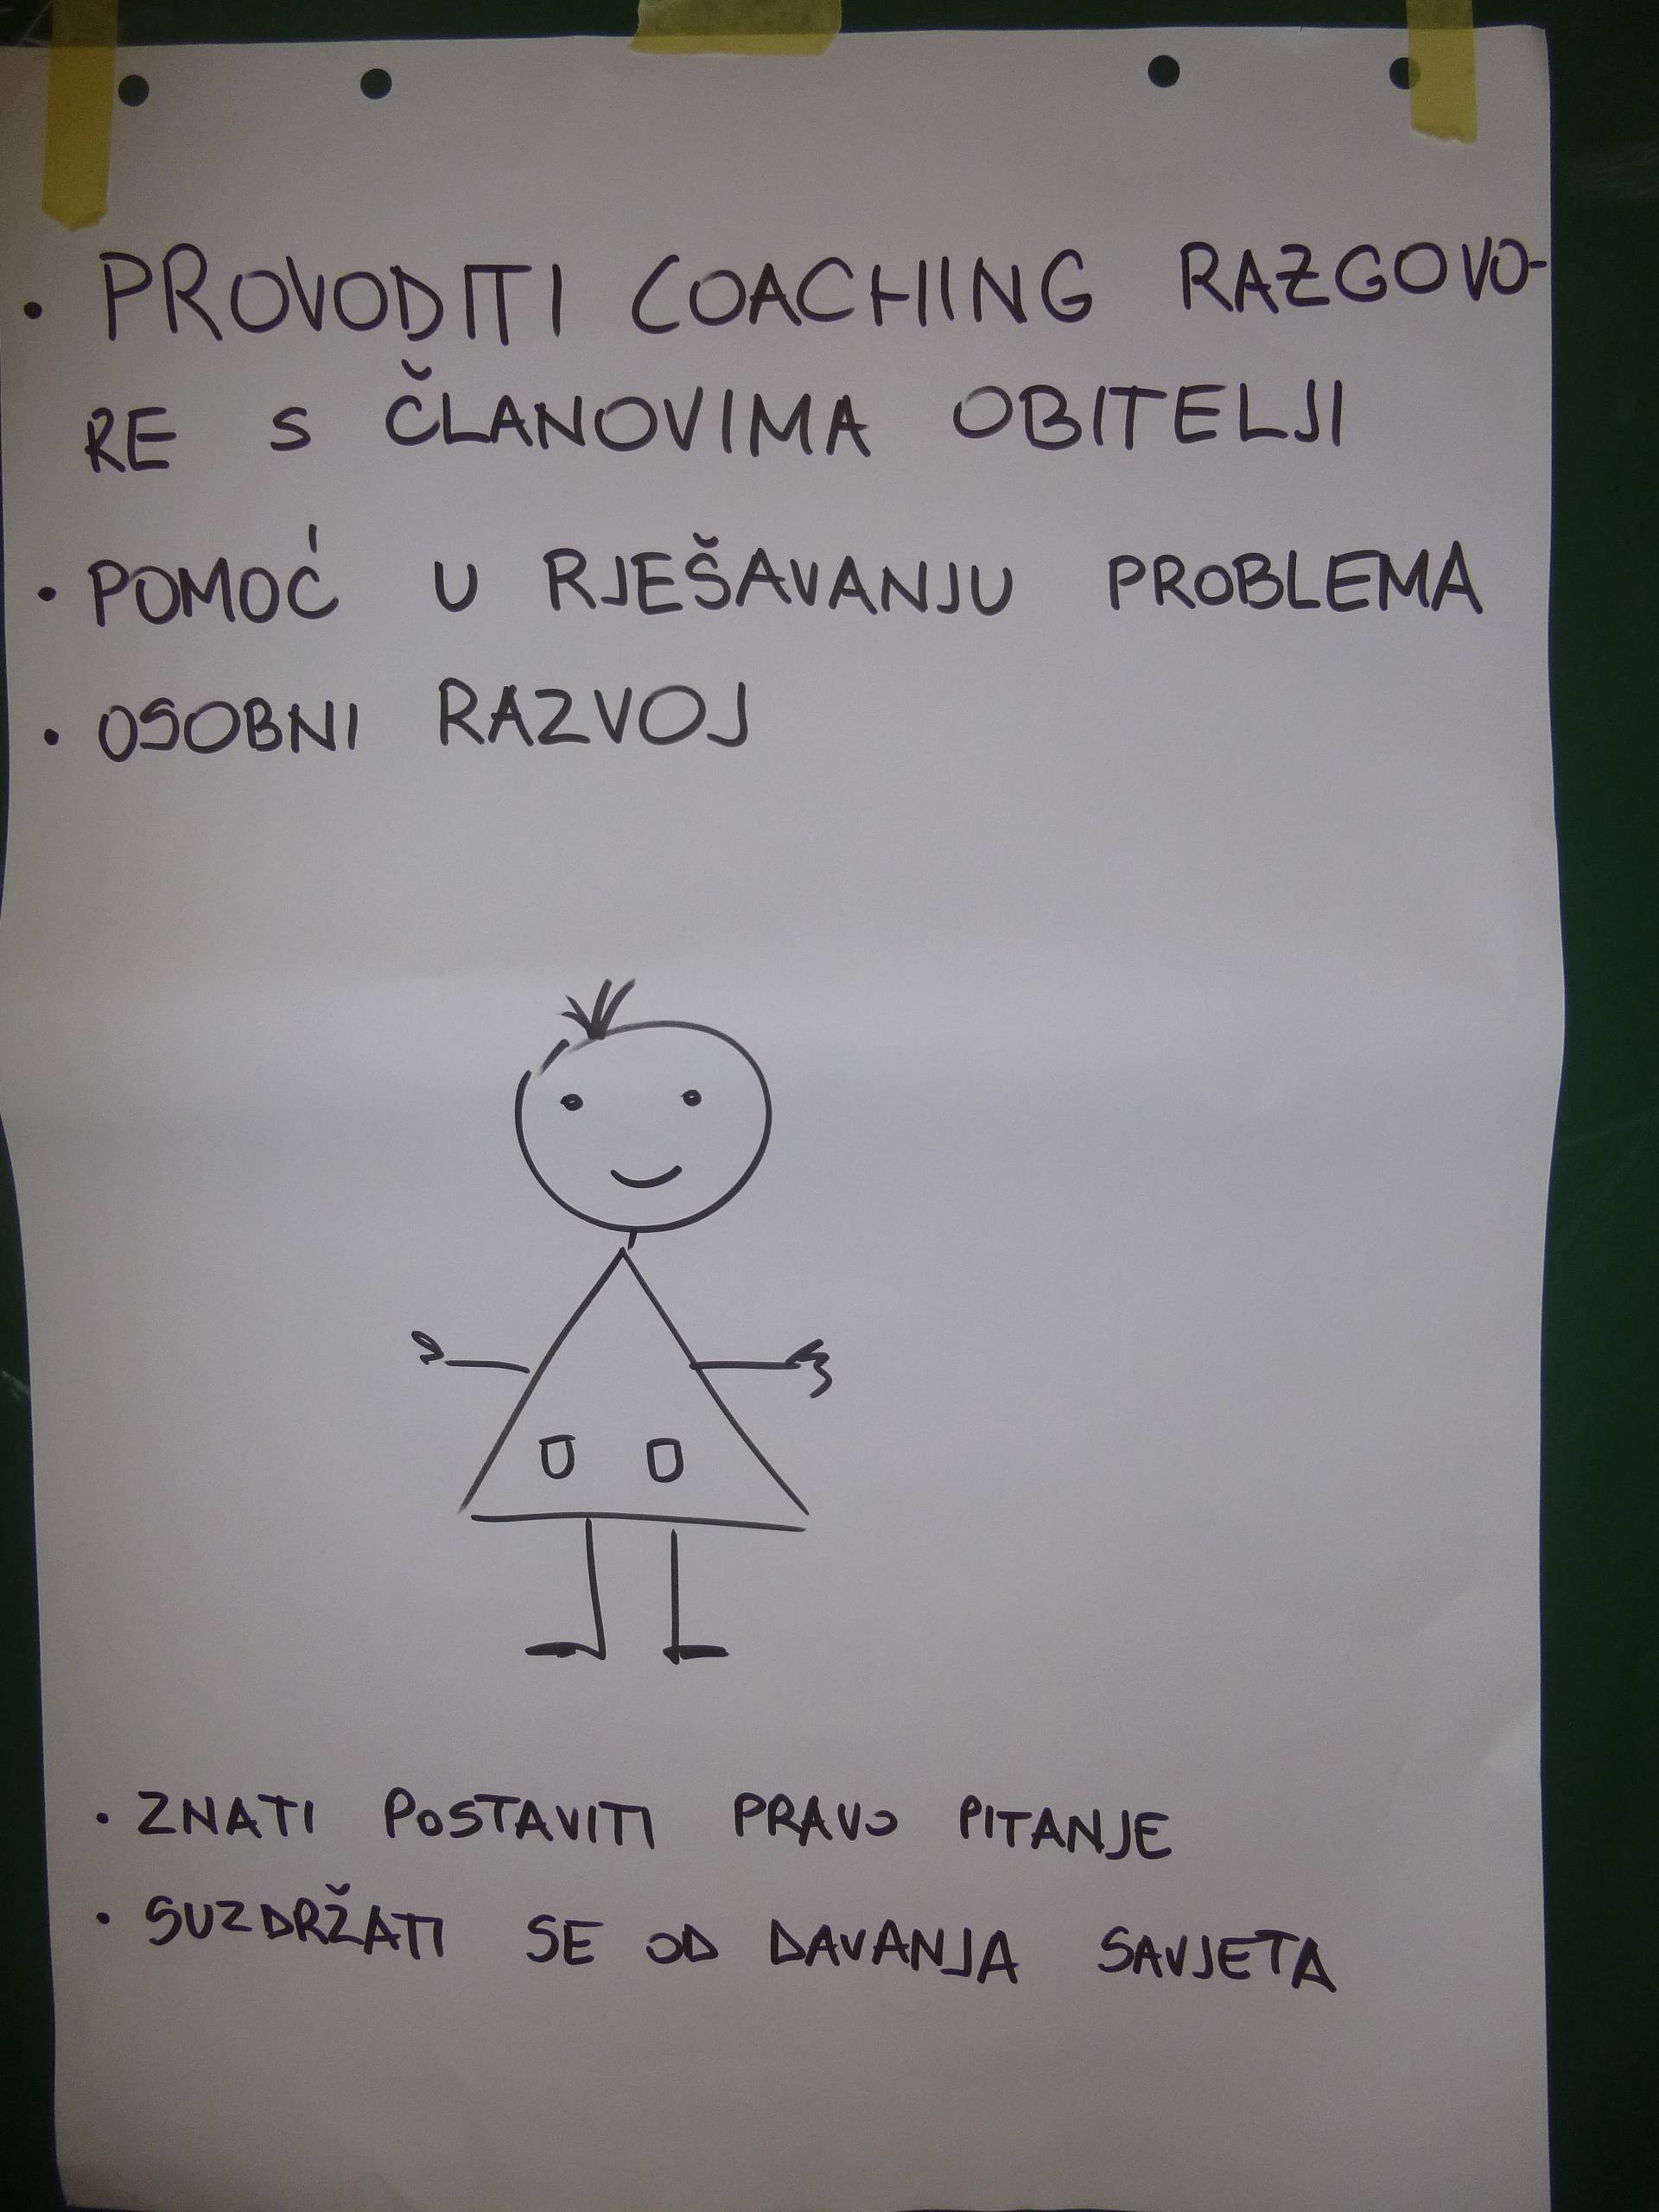 • PROVODITI COACHING RAZGOVO-
RE S ČLANOVIMA OBITELJI
• POMOĆ U RJEŠAVANJU PROBLEMA
• OSOBNI RAZVOJ
• ZNATI POSTAVITI PRAVO PITANJE
• SUZDRŽATI SE OD DAVANJA SAVJETA